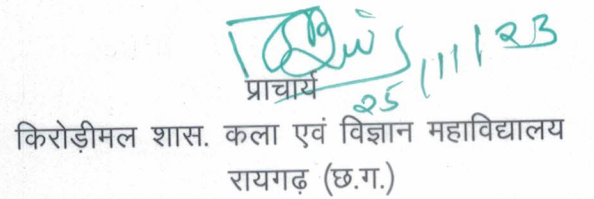 25/11/23
प्राचार्य
किरोड़ीमल शास. कला एवं विज्ञान महाविद्यालय
रायगढ़ (छ.ग.)